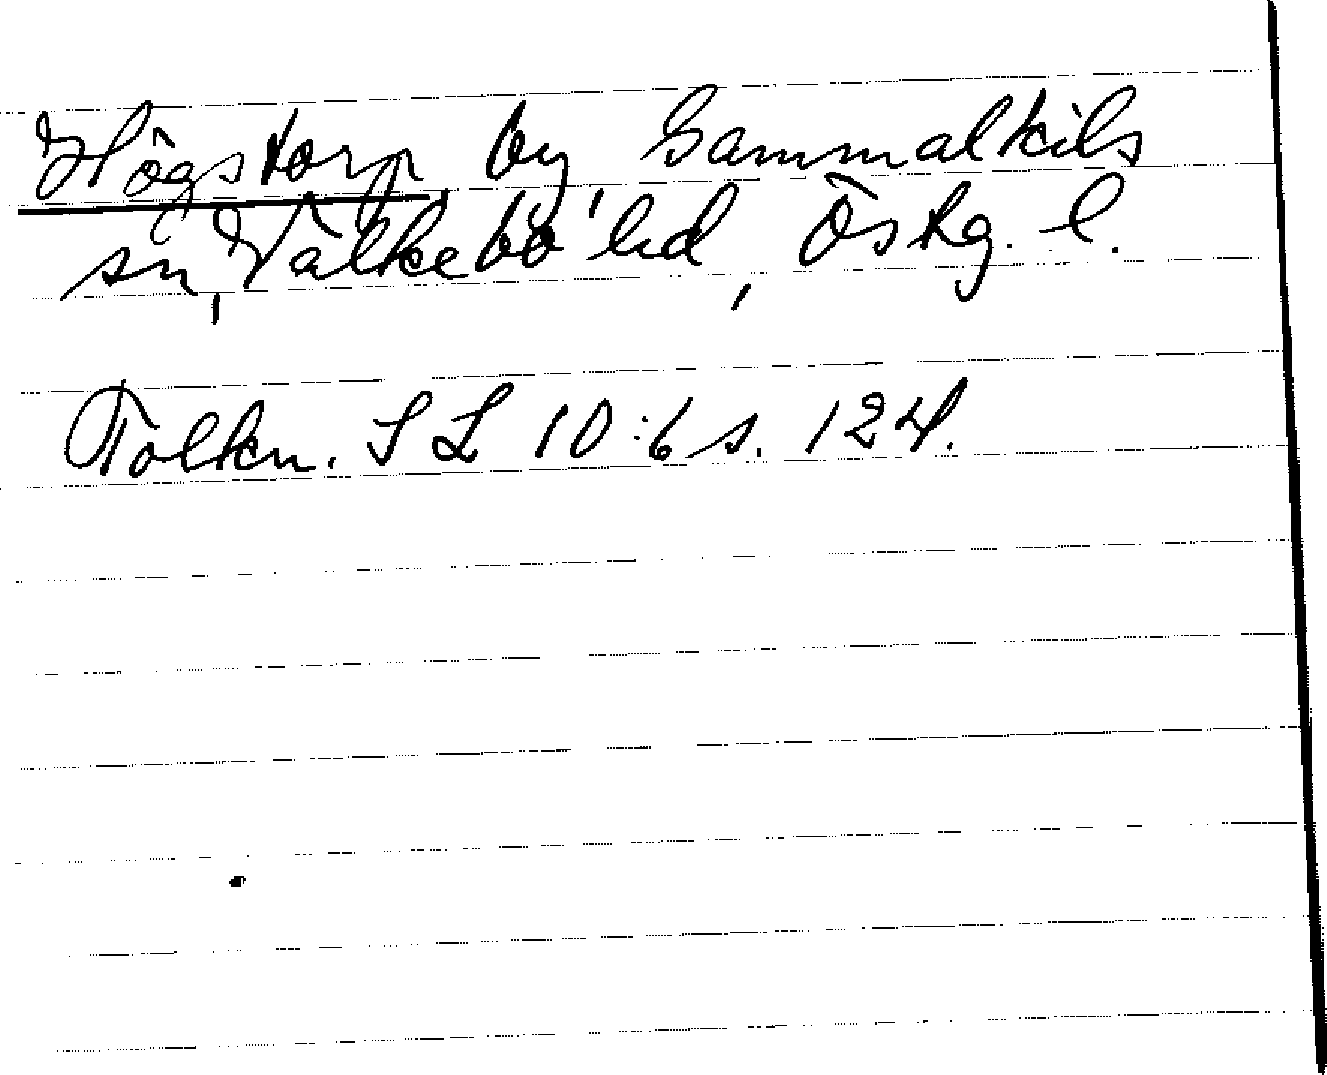 Högstorp, by, Gammalkils
sn, Valkebo hd, Östg. l.
Tolkn. SL 10:6 s. 124.